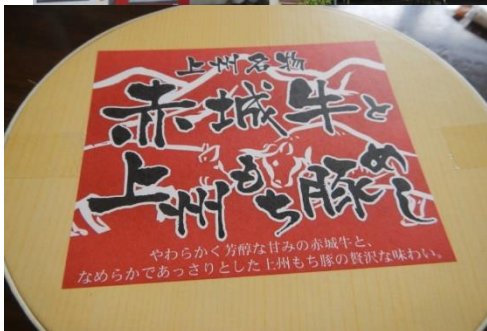 上州名物
赤城牛と
上州もち豚めし
やわらかく芳醇な甘みの赤城牛と、
なめらかであっさりとした上州もち豚の贅沢な味わい。